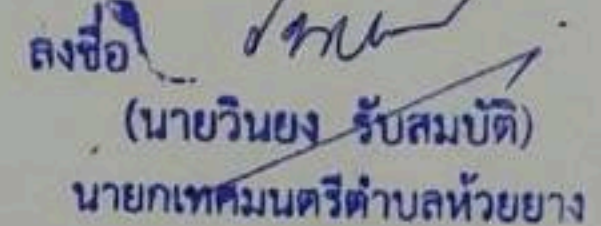 ลงชื่อ
(นายวินยง รับสมบัติ)
นายกเทศมนตรีตำบลห้วยยาง